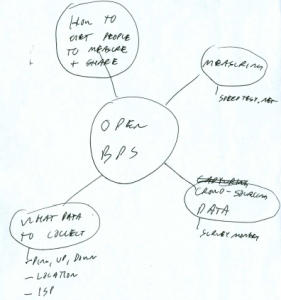 HOW TO
GET PEOPLE
TO MEASURE
+ SHARE
MEASURING
SPEEDTEST.NET
OPEN
BPS
CAPTURING
CROWD-SOURCING
DATA
SURVEY MONKEY
WHAT DATA
TO COLLECT
- PING, UP, DOWN
- LOCATION
- ISP